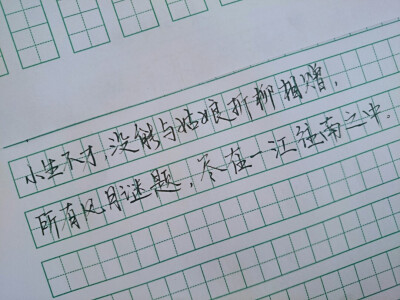 小生不才，没能与姑娘折柳相赠，
所有风月谜题，尽在一江淮南之中。